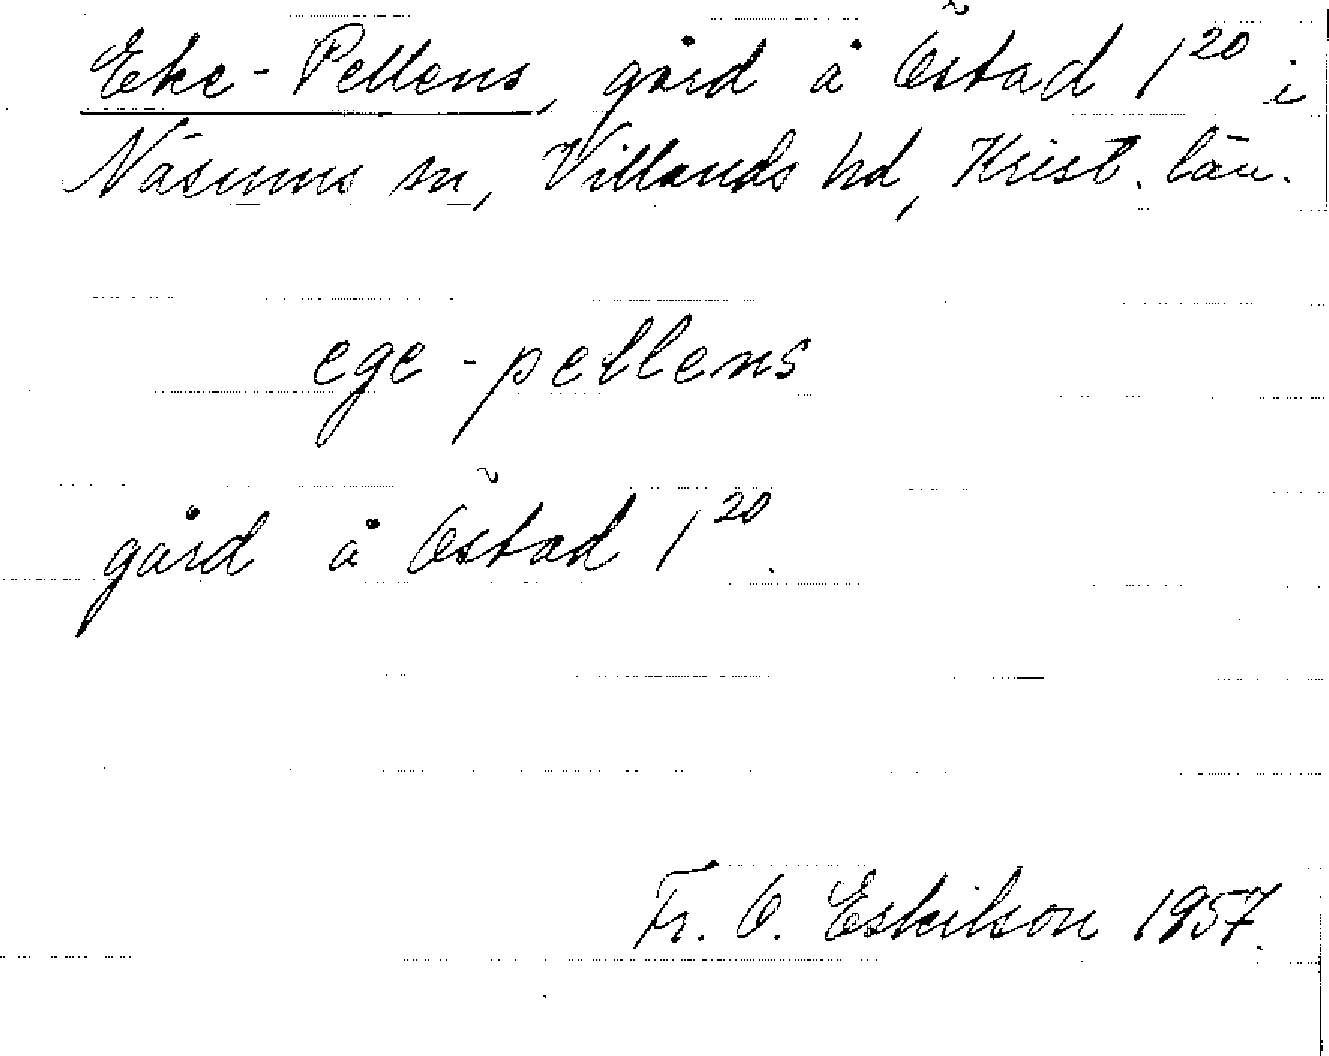 Eke-Pellens, gård å Östad 1²⁰ i
Näsums sn, Villands hd, Krist. län.
ege-pellens
gård å Östad 1²⁰.
Fr. O. Eskilson 1957.